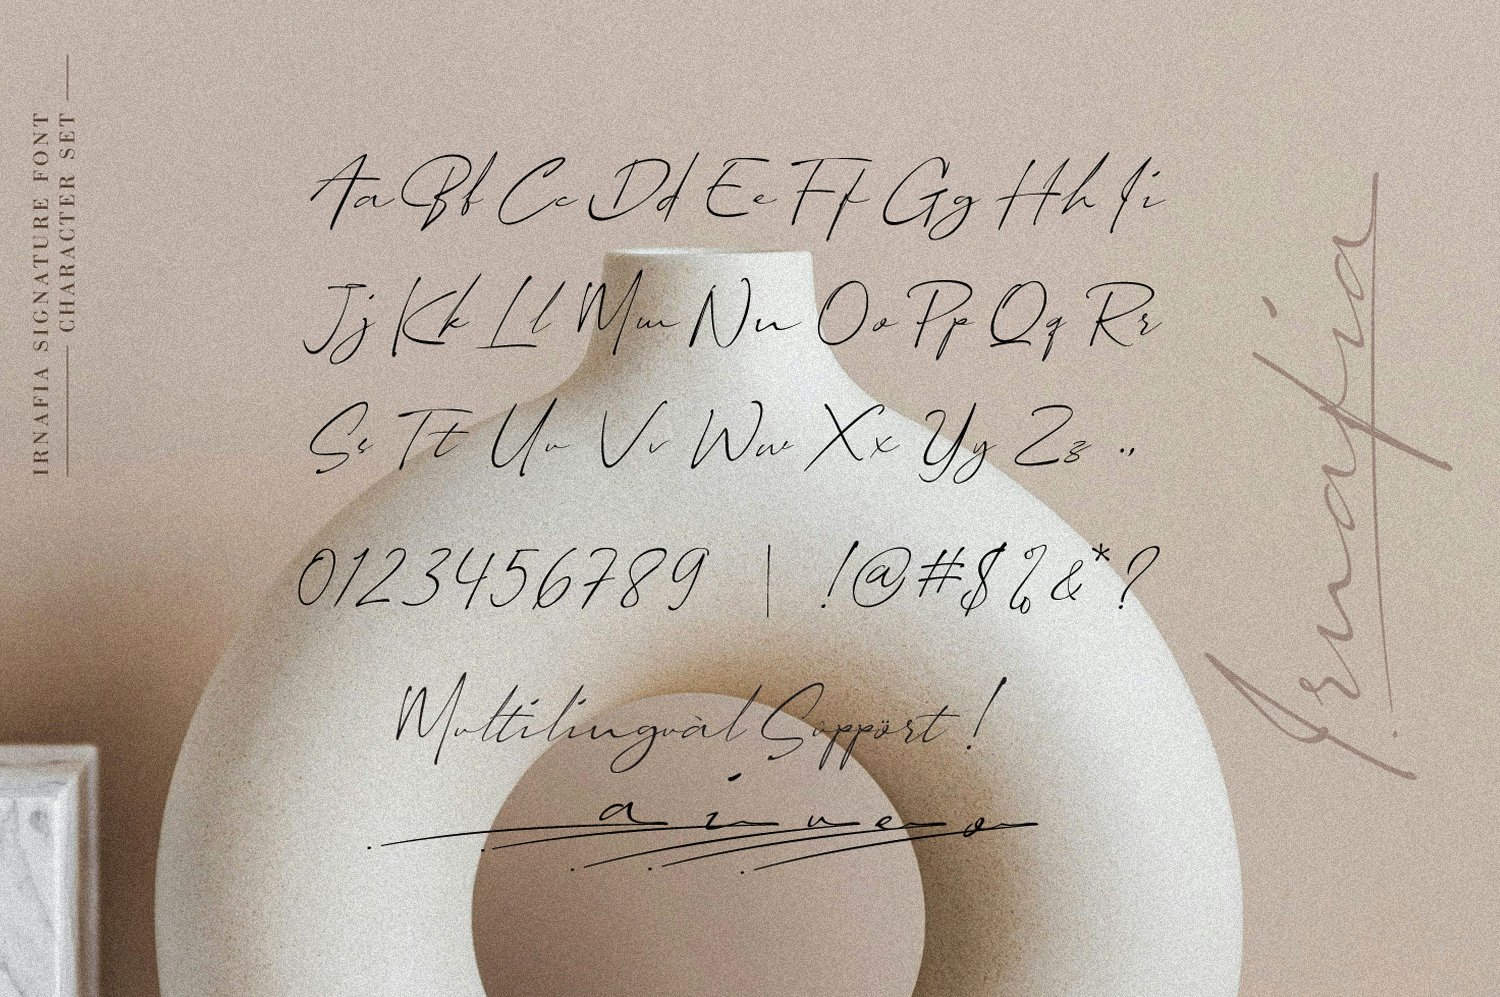 IRNAFIA SIGNATURE FONT
CHARACTER SET
Aa Bb Cc Dd Ee Ff Gg Hh Ii
Jj Kk Ll Mm Nn Oo Pp Qq Rr
Ss Tt Uu Vv Ww Xx Yy Zz .,
0123456789 | !@#$%&*?
Multilinguàl Süppört !
a i n e o
Irnafia